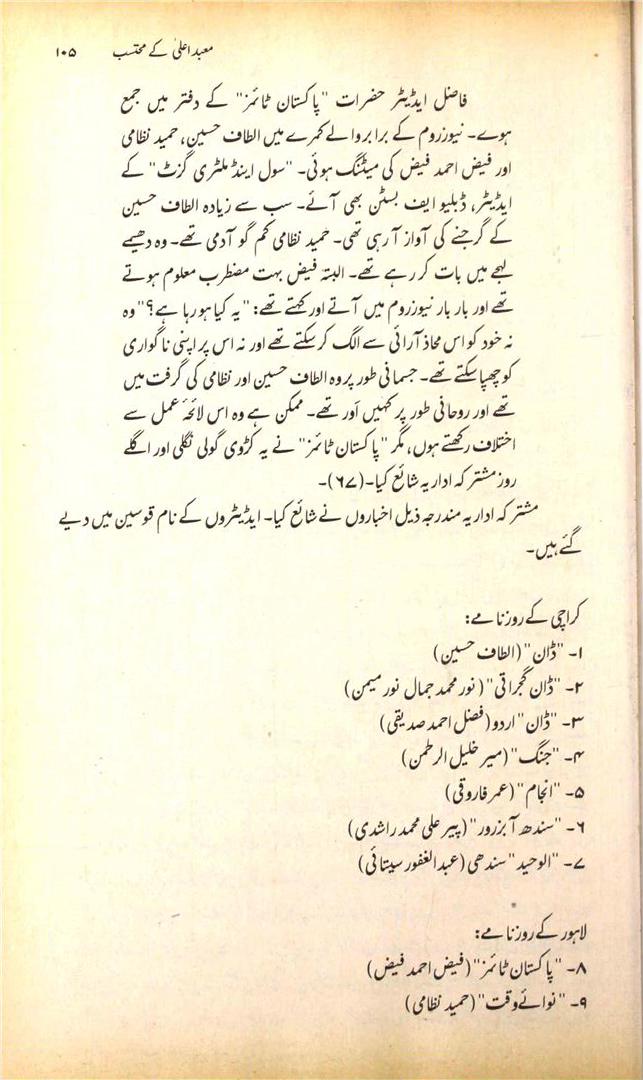 معبد اعلیٰ کے محتسب ۱۰۵
فاضل ایڈیٹر حضرات "پاکستان ٹائمز" کے دفتر میں جمع
ہوے۔ نیوزروم کے برابر والے کمرے میں الطاف حسین، حمید نظامی
اور فیض احمد فیض کی میٹنگ ہوئی۔ "سول اینڈ ملٹری گزٹ" کے
ایڈیٹر، ڈبلیو ایف بسٹن بھی آئے۔ سب سے زیادہ الطاف حسین
کے گرجنے کی آواز آ رہی تھی۔ حمید نظامی کم گو آدمی تھے۔ وہ دھیمے
لہجے میں بات کر رہے تھے۔ البتہ فیض بہت مضطرب معلوم ہوتے
تھے اور بار بار نیوزروم میں آتے اور کہتے تھے: "یہ کیا ہو رہا ہے؟" وہ
نہ خود کو اس محاذ آرائی سے الگ کر سکتے تھے اور نہ اس پر اپنی ناگواری
کو چھپا سکتے تھے۔ جسمانی طور پر وہ الطاف حسین اور نظامی کی گرفت میں
تھے اور روحانی طور پر کہیں اَور تھے۔ ممکن ہے وہ اس لائحۂ عمل سے
اختلاف رکھتے ہوں، مگر "پاکستان ٹائمز" نے یہ کڑوی گولی نگلی اور اگلے
روز مشترکہ اداریہ شائع کیا۔ (۶۷)۔
مشترکہ اداریہ مندرجہ ذیل اخباروں نے شائع کیا۔ ایڈیٹروں کے نام قوسین میں دیے
گئے ہیں۔
کراچی کے روزنامے:
۱۔ "ڈان" (الطاف حسین)
۲۔ "ڈان گجراتی" (نور محمد جمال نور میمن)
۳۔ "ڈان" اردو (فضل احمد صدیقی)
۴۔ "جنگ" (میر خلیل الرحمٰن)
۵۔ "انجام" (عمر فاروقی)
۶۔ "سندھ آبزرور" (پیر علی محمد راشدی)
۷۔ "الوحید" سندھی (عبدالغفور سیتائی)
لاہور کے روزنامے:
۸۔ "پاکستان ٹائمز" (فیض احمد فیض)
۹۔ "نوائے وقت" (حمید نظامی)